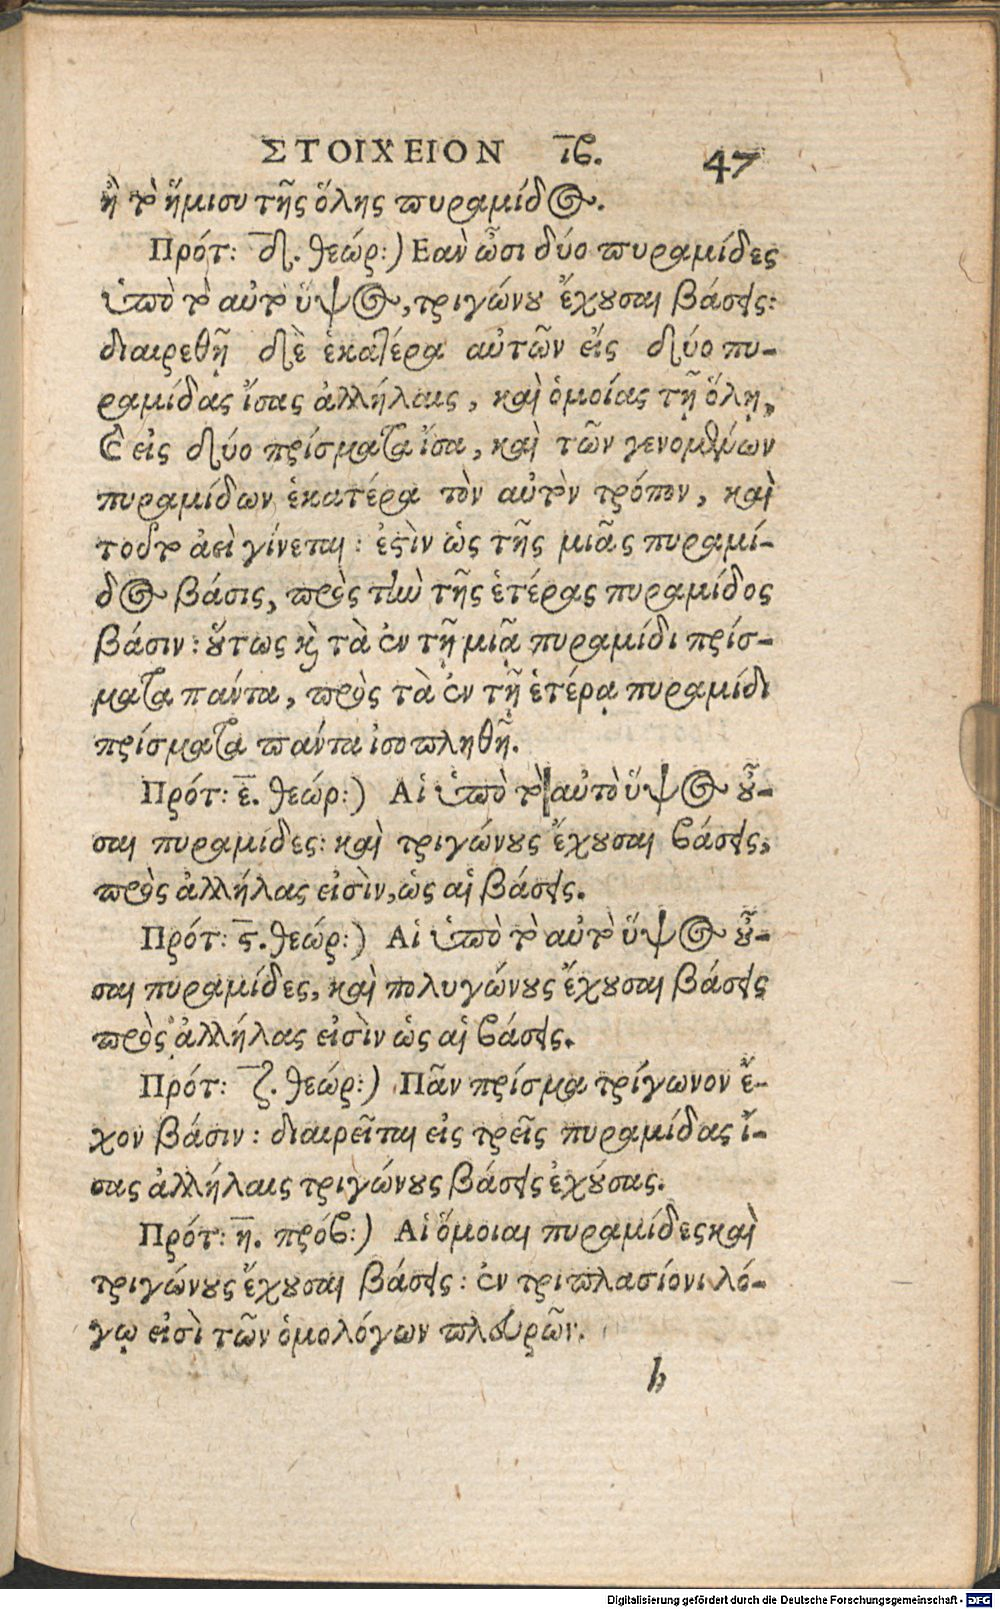 ΣΤΟΙΧΕΙΟΝ ιϐ. 47
ἢ τὸ ἥμισυ τῆς ὅλης πυραμίδος.
Πρότ: δ. θεώρ:) Εαν ὦσι δύο πυραμίδες
ὑπὸ τὸ αὐτὸ ὕψος, τριγώνου ἔχουσαι βάσεις:
διαιρεθῇ δὲ ἑκατέρα αὐτῶν εἰς δύο πυ-
ραμίδας ἴσας ἀλλήλαις, καὶ ὁμοίας τῇ ὅλῃ,
καὶ εἰς δύο πρίσματα ἴσα, καὶ τῶν γενομένων
πυραμίδων ἑκατέρα τὸν αὐτὸν τρόπον, καὶ
τοῦτο ἀεὶ γίνεται: ἐστὶν ὡς τῆς μιᾶς πυραμί-
δος βάσις, πρὸς τὴν τῆς ἑτέρας πυραμίδος
βάσιν: οὕτως καὶ τὰ ἐν τῇ μιᾷ πυραμίδι πρίσ-
ματα πάντα, πρὸς τὰ ἐν τῇ ἑτέρᾳ πυραμίδι
πρίσματα πάντα ἰσοπληθῆ.
Πρότ: ε. θεώρ:) Αἱ ὑπὸ τὸ αὐτὸ ὕψος οὖ-
σαι πυραμίδες: καὶ τριγώνους ἔχουσαι ϐάσεις,
πρὸς ἀλλήλας εἰσὶν, ὡς αἱ βάσεις.
Πρότ: ϛ. θεώρ:) Αἱ ὑπὸ τὸ αὐτὸ ὕψος οὖ-
σαι πυραμίδες, καὶ πολυγώνους ἔχουσαι βάσεις
πρὸς ἀλλήλας εἰσὶν ὡς αἱ ϐάσεις.
Πρότ: ζ. θεώρ:) Πᾶν πρίσμα τρίγωνον ἔ-
χον βάσιν: διαιρεῖται εἰς τρεῖς πυραμίδας ἴ-
σας ἀλλήλαις τριγώνους βάσεις ἐχούσας.
Πρότ: η. πρόϐ:) Αἱ ὅμοιαι πυραμίδες καὶ
τριγώνους ἔχουσαι βάσεις: ἐν τριπλασίονι λό-
γῳ εἰσὶ τῶν ὁμολόγων πλευρῶν.
h
Digitalisierung gefördert durch die Deutsche Forschungsgemeinschaft - DFG